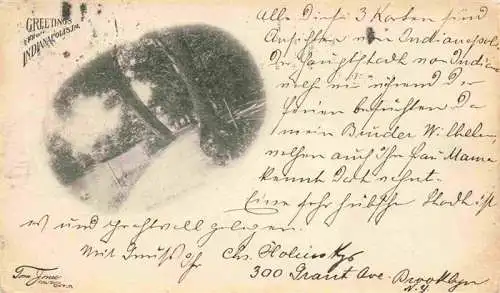 GREETINGS
FROM
INDIANAPOLIS, IN.
Alle Diese 3 Karten sind
Ansichten von Indianapolis
der Hauptstadt von Indi
ich während der
Ferien besuchten Da
mein Bruder Wilhelm
welchen auch Ihr Frau Mama
kennt Dort wohnt.
Eine sehr hübsche Stadt ist
es und prachtvoll gelegen.
Mit Gruß Ihr Chs.
300 Grant Ave. Brooklyn
N.Y.